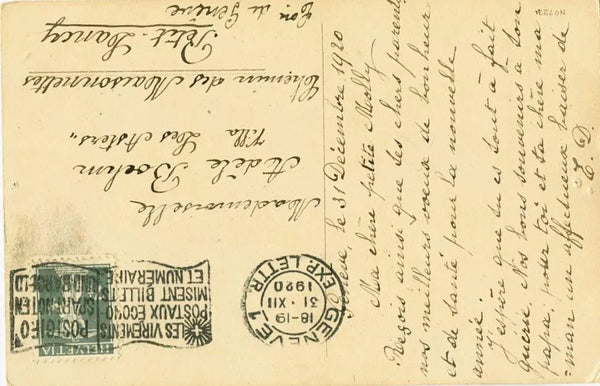 Genève, le 31 Décembre 1920
Ma chère petite Molly
Reçois ainsi que tes chers parents
nos meilleurs voeux de bonheur
et de santé pour la nouvelle
année.
J'espère que tu es tout à fait
guérie. Nos bons souvenirs à ton
papa, pour toi et ta chère ma
-man un affectueux baiser de
E. D.
Mademoiselle
Adèle Boehm
Villa "Les Asters"
Chemin des Maisonnettes
Petit-Lancy
Con de Genève
GENEVE 1
18-19
31.XII
1920
EXP. LETTR.
LES VIREMENTS
POSTAUX ECONO
MISENT BILLETS
ET NUMERAIRE
POSTGIRO
SPART NOTEN
UND BARGELD
HELVETIA